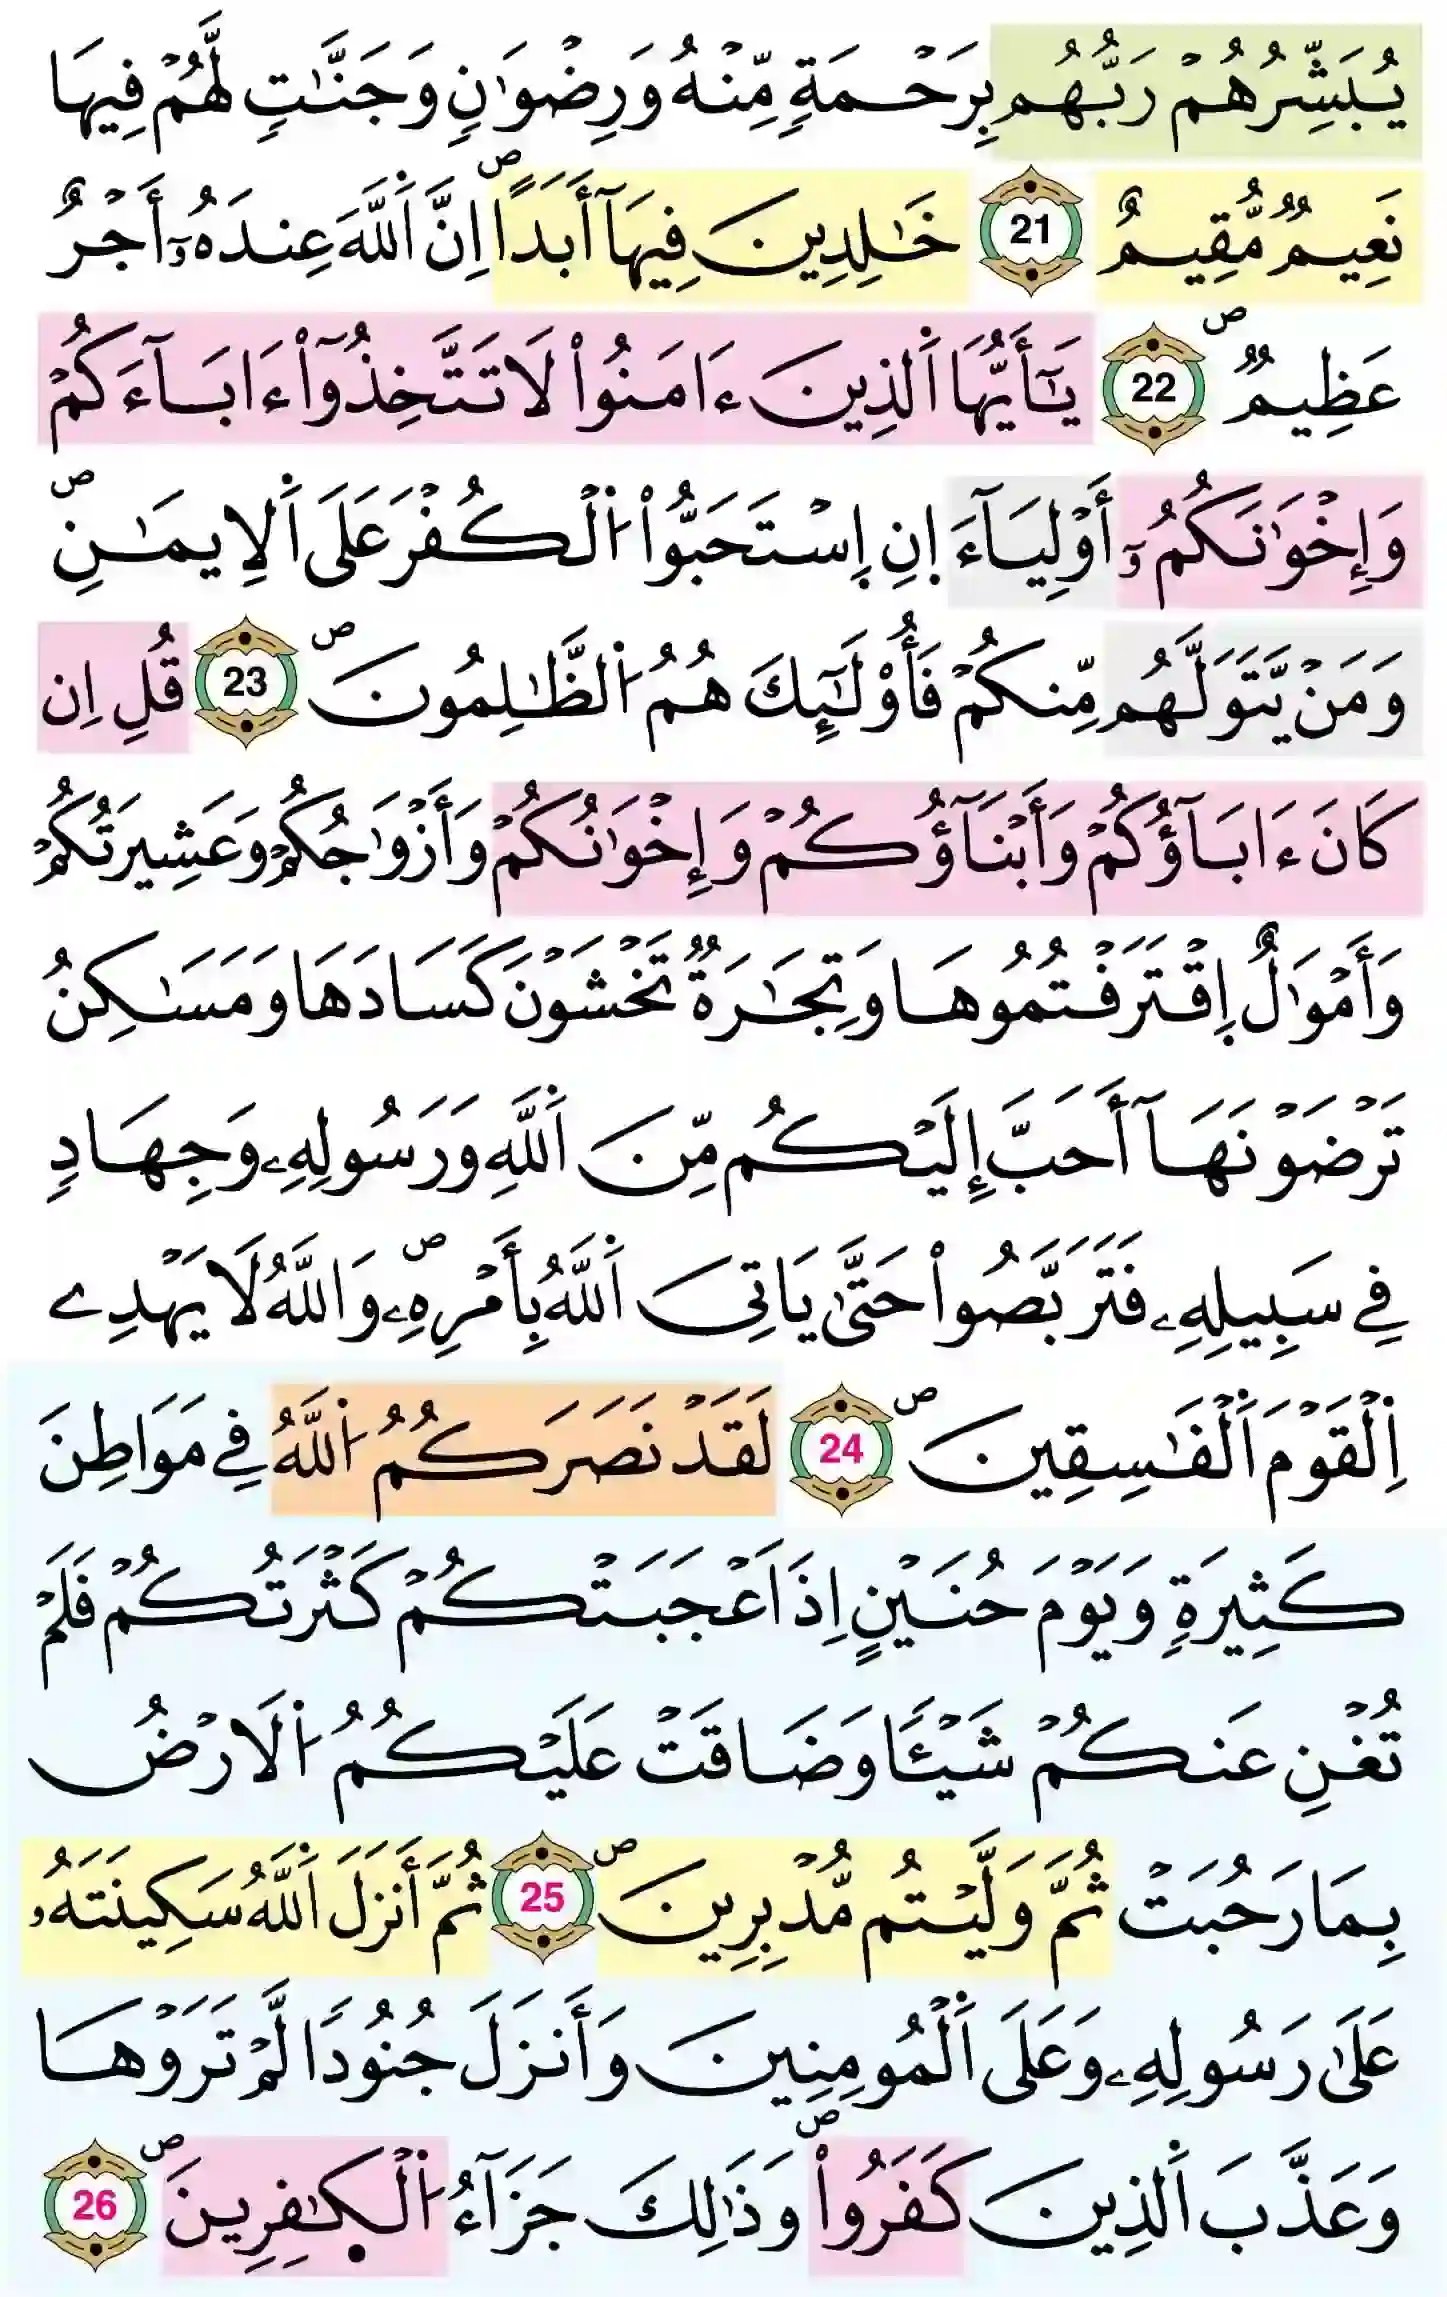 يُبَشِّرُهُمْ رَبُّهُم بِرَحْمَةٍ مِّنْهُ وَرِضْوَٰنٍ وَجَنَّٰتٍ لَّهُمْ فِيهَا
نَعِيمٌ مُّقِيمٌ 21 خَٰلِدِينَ فِيهَآ أَبَداًۖ اِنَّ اَ۬للَّهَ عِندَهُۥٓ أَجْرٌ
عَظِيمٌۖ 22 يَٰٓأَيُّهَا اَ۬لذِينَ ءَامَنُواْ لَا تَتَّخِذُوٓاْ ءَابَآءَكُمْ
وَإِخْوَٰنَكُمُۥٓ أَوْلِيَآءَ اِنِ اِ۪سْتَحَبُّواْ اُ۬لْكُفْرَ عَلَى اَ۬لِايمَٰنِۖ
وَمَنْ يَّتَوَلَّهُم مِّنكُمْ فَأُوْلَٰٓئِكَ هُمُ اُ۬لظَّٰلِمُونَۖ 23 قُلِ اِن
كَانَ ءَابَآؤُكُمْ وَأَبْنَآؤُكُمْ وَإِخْوَٰنُكُمْ وَأَزْوَٰجُكُمْ وَعَشِيرَتُكُمْ
وَأَمْوَٰلٌ اِ۪قْتَرَفْتُمُوهَا وَتِجَٰرَةٌ تَخْشَوْنَ كَسَادَهَا وَمَسَٰكِنُ
تَرْضَوْنَهَآ أَحَبَّ إِلَيْكُم مِّنَ اَ۬للَّهِ وَرَسُولِهِۦ وَجِهَادٍ
فِے سَبِيلِهِۦ فَتَرَبَّصُواْ حَتَّىٰ يَاتِىَ اَ۬للَّهُ بِأَمْرِهِۦۖ وَاللَّهُ لَا يَهْدِے
اِ۬لْقَوْمَ اَ۬لْفَٰسِقِينَۖ 24 لَقَدْ نَصَرَكُمُ اُ۬للَّهُ فِے مَوَاطِنَ
كَثِيرَةٍ وَيَوْمَ حُنَيْنٍ اِذَ اَعْجَبَتْكُمْ كَثْرَتُكُمْ فَلَمْ
تُغْنِ عَنكُمْ شَيْـًٔا وَضَاقَتْ عَلَيْكُمُ اُ۬لَارْضُ
بِمَا رَحُبَتْ ثُمَّ وَلَّيْتُم مُّدْبِرِينَۖ 25 ثُمَّ أَنزَلَ اَ۬للَّهُ سَكِينَتَهُۥ
عَلَىٰ رَسُولِهِۦ وَعَلَى اَ۬لْمُومِنِينَ وَأَنزَلَ جُنُودًا لَّمْ تَرَوْهَا
وَعَذَّبَ اَ۬لذِينَ كَفَرُواْۖ وَذَٰلِكَ جَزَآءُ اُ۬لْكٰ۪فِرِينَۖ 26